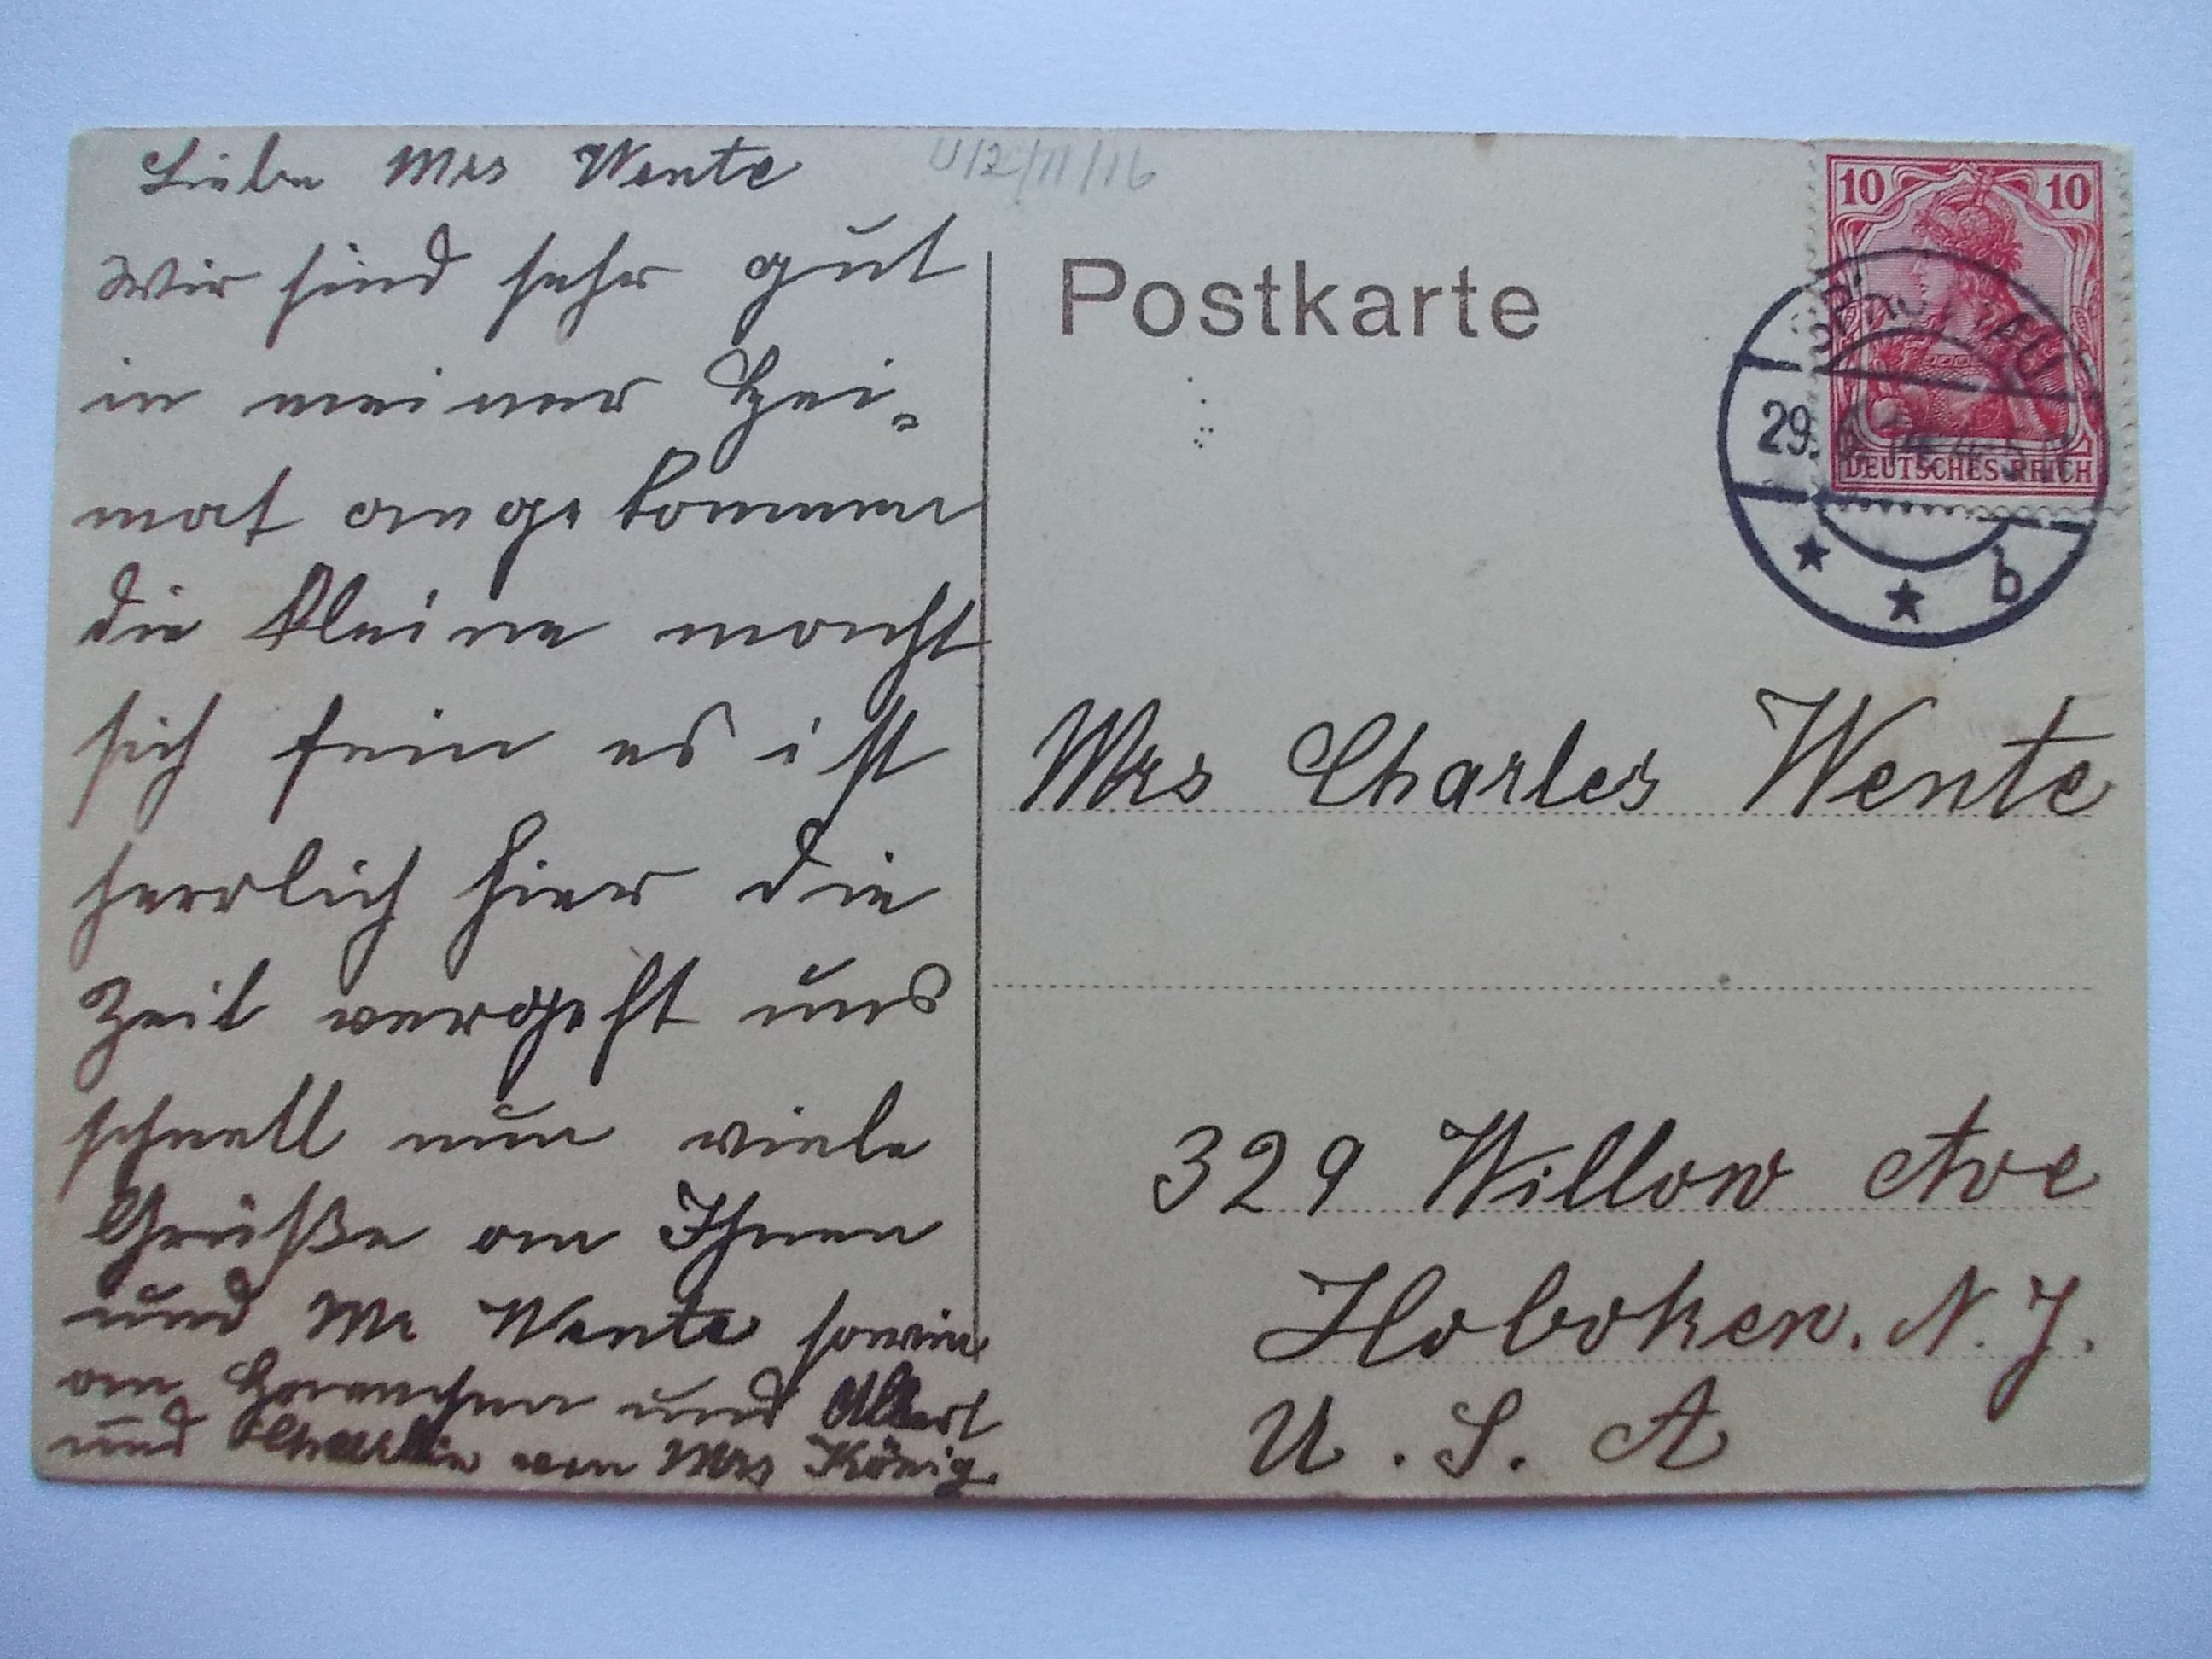 Liebe Mrs Wente
Wir sind sehr gut
in meiner Hei=
mat angekommen
die kleine macht
sich fein es ist
herrlich hier die
Zeit vergeht uns
schnell nun viele
Grüße an Ihnen
und Mr Wente sowie
an Hannchen und Albert
und von Mrs König.
Postkarte
10 10
DEUTSCHES REICH
29.
b
Mrs Charles Wente
329 Willow Ave
Hoboken. N. J.
U. S. A